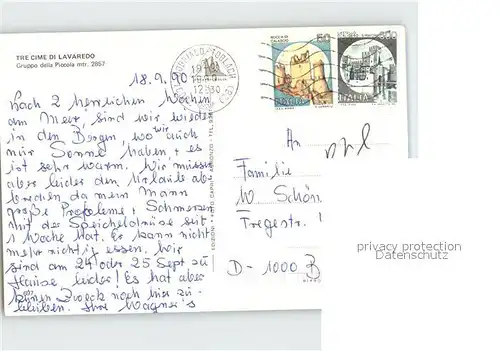 TRE CIME DI LAVAREDO
Gruppo della Piccola mtr. 2857
18.9.90
Nach 2 herrlichen Wochen
am Meer, sind wir wieder
in den Bergen, wo wir auch
nur Sonne haben + es
ist sehr warm. Wir müssen
aber leider den Urlaub ab-
brechen da mein Mann
große Probleme + Schmerzen
mit der Speicheldrüse seit
1 Woche hat. Er kann nicht
mehr richtig essen. Wir
sind am 24 oder 25 Sept zu
Hause leider! Es hat aber
keinen Zweck noch hier zu-
bleiben. Ihre Wagner's
ROCCA DI CALASCIO
50
ITALIA
ITALIA
12 30
An
Familie
W Schön
Fregestr.
D-1000 B
privacy protection
Datenschutz